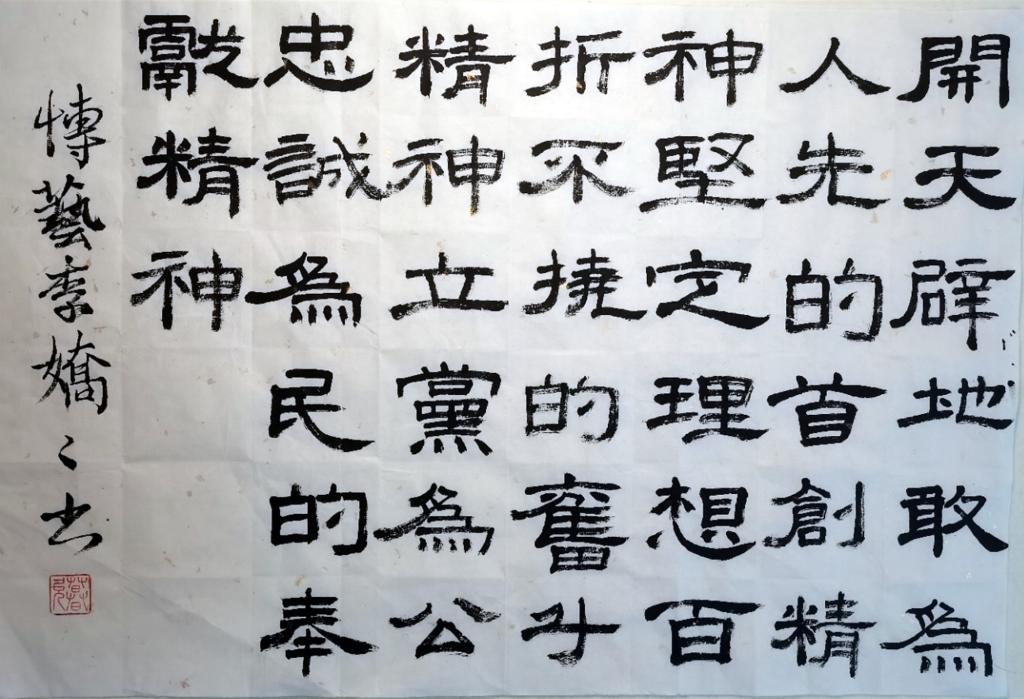 開天辟地敢為
人先的首創精
神堅定理想百
折不撓的奮斗
精神立黨為公
忠誠為民的奉
獻精神
愽藝李嬌々书